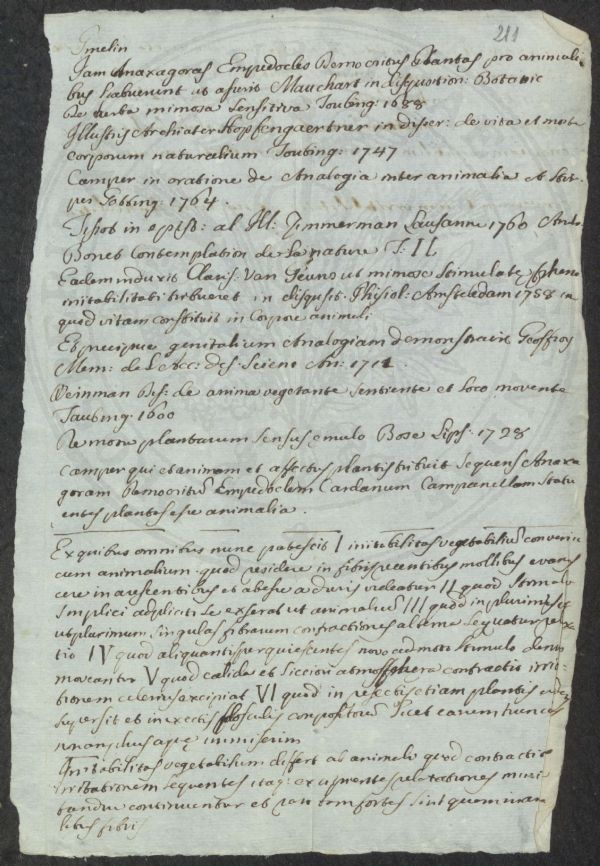 211
Gmelin
Jam Anaxagoras Empedocles Democritus Plantas pro animali
bus habuerunt ut asserit Mauchart in disquisition: Botanic
De herba mimosa Sensitiva Toubing: 1688
Illustris Archiater Hopfengaertner in disser: de vita et morte
corporum naturalium Toubing: 1747
Camper in oratione de Analogia inter animalia et Stir-
pes 1764
Tissot in epist: al Ill: Zimmerman Lausanne 1760
Bonet Contemplation de La nature T: II
Eadem Clariss: Van ut mimosæ Stimulatę
in disquisit. Physiol: Amsteldam 1758 in
quod vitam constituit in Corpore animali
Et precipue genitalium Analogiam demonstravit Geoffroy
Mem: de L Acc: des Scienc An: 1711.
Weinman Dis: de anima vegetante Sentiente et Loco movente
Taubing. 1600
De motu plantarum Sensus ęmulo Bose Lips. 1728
Camper qui et animam et affectus plantis tribuit Sequens Anaxa
goram Democritū Empedoclem Cardanum Campanellam Statu
entes plantas esse animalia.
Ex quibus omnibus nunc patescit I irritabilitas vegetabiliū convenire
cum animalium. quod residere in fibris recentibus mollibus evanes
cere in arescentibus et abesse a duris videatur II quod Stimulo
Simplici adplicito se exserat ut animaliū III quod in plurimis
ut plurimum Singulas fibrarum contractiones alterne Sequatur relaxa
tio IV quod aliquantisper quiescentes novo admoto Stimulo denuo
moveantur V quod calida et Sicciori atmosphera contractio irrita-
tionem celerius excipiat VI quod in resectis etiam plantis
Supersit et in erectis flosculis compositorū Licet earum truncos
immiserim
Irritabilitas vegetabilium differt ab animali quod contractio
irritationem Sequentes
continuentur et non tam fortes Sint quam in
fibris